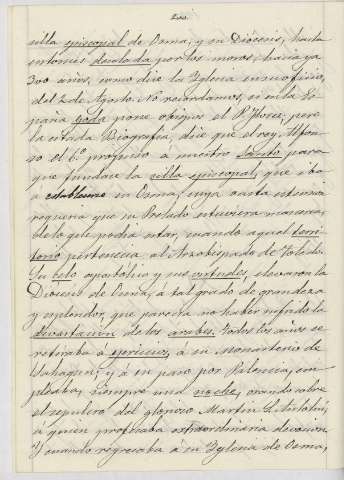 silla episcopal de Osma, y su Diócesis, hasta
entónces desolada por los moros, hacia ya
300 años, como dice la Iglesia en su oficio,
del 2 de Agosto. No recordamos, si en la Es-
paña goda pone obispos el P. Florez, pero
la citada Biografía, dice que el rey Alfon-
so el 6º propuso á nuestro Santo para
que fundara la silla episcopal, que iba
á establecerse en Osma, cuya vasta extensa
requeria que su Prelado estuviera mas cerca
de lo que podia estar, cuando aquel terri-
torio pertenecia al Arzobispado de Toledo.
Su celo apostólico y sus virtudes, elevaron la
Diócesis de Osma, á tal grado de grandeza
y esplendor, que parecia no haber sufrido la
devastacion de los árabes. Todos los años se
retiraba á ejercicios, á su Monasterio de
Sahagun, y á su paso por Palencia, em-
pleaba, siempre una noche, orando sobre
el sepulcro del glorioso Martir S. Antolin,
á quien profesaba extraordinaria devocion.
Y cuando regresaba á su Iglesia de Osma,